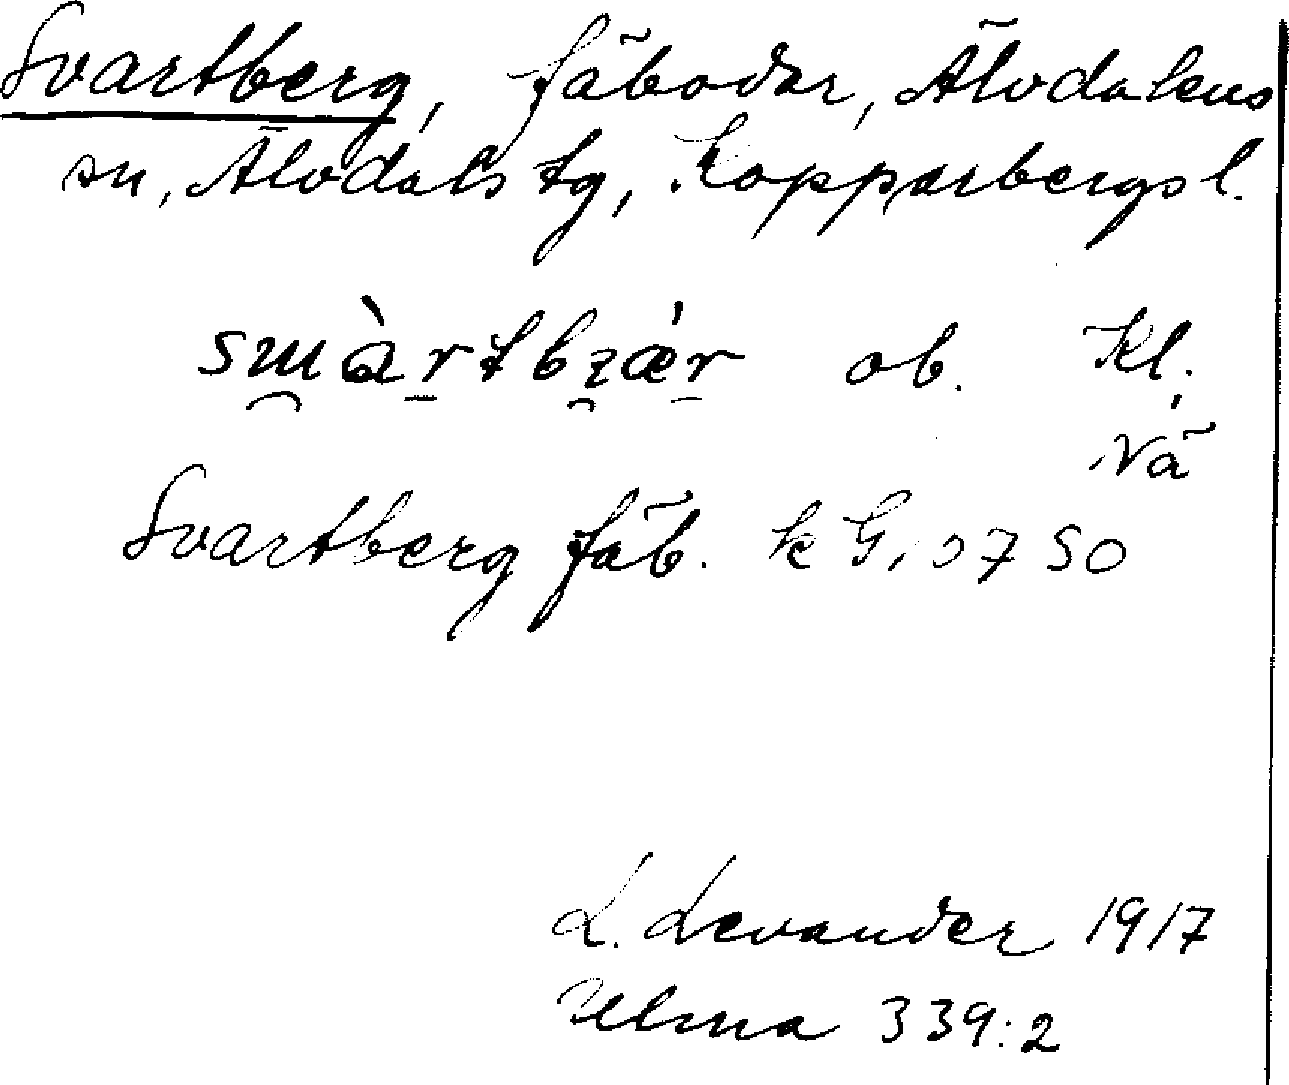 Svartberg, fäbodar, Älvdalens
sn, Älvdals tg, Kopparbergs l.
ob. Kl.
Vä
Svartberg fäb. k G, 0750
L. Levander 1917
Ulma 339:2